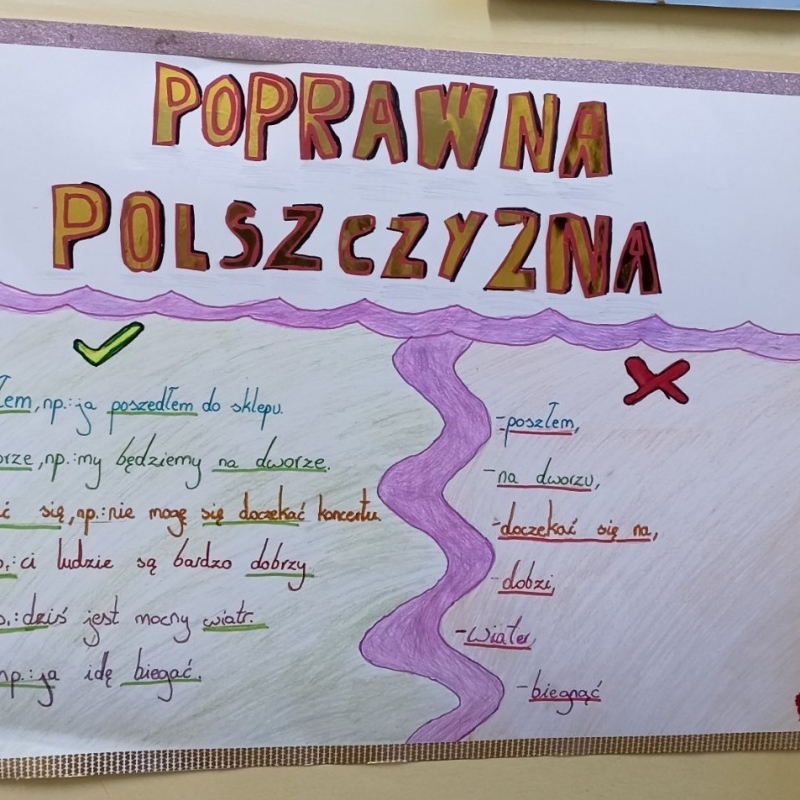 POPRAWNA
POLSZCZYZNA
łem, np.: ja poszedłem do sklepu.
-poszłem,
orze, np.: my będziemy na dworze.
-na dworzu,
ć się, np.: nie mogę się doczekać koncertu.
-doczekać się na,
p.: ci ludzie są bardzo dobrzy.
-dobzi,
p.: dziś jest mocny wiatr.
-wiater,
np.: ja idę biegać.
-biegnąć